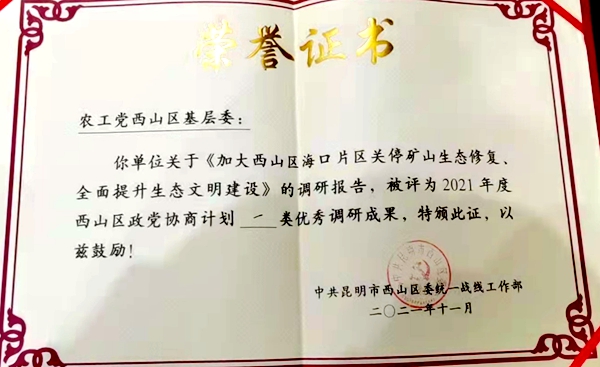 荣誉证书
农工党西山区基层委：
你单位关于《加大西山区海口片区关停矿山生态修复、
全面提升生态文明建设》的调研报告，被评为2021年度
西山区政党协商计划 一 类优秀调研成果，特颁此证，以
兹鼓励！
中共昆明市西山区委统一战线工作部
二〇二一年十一月